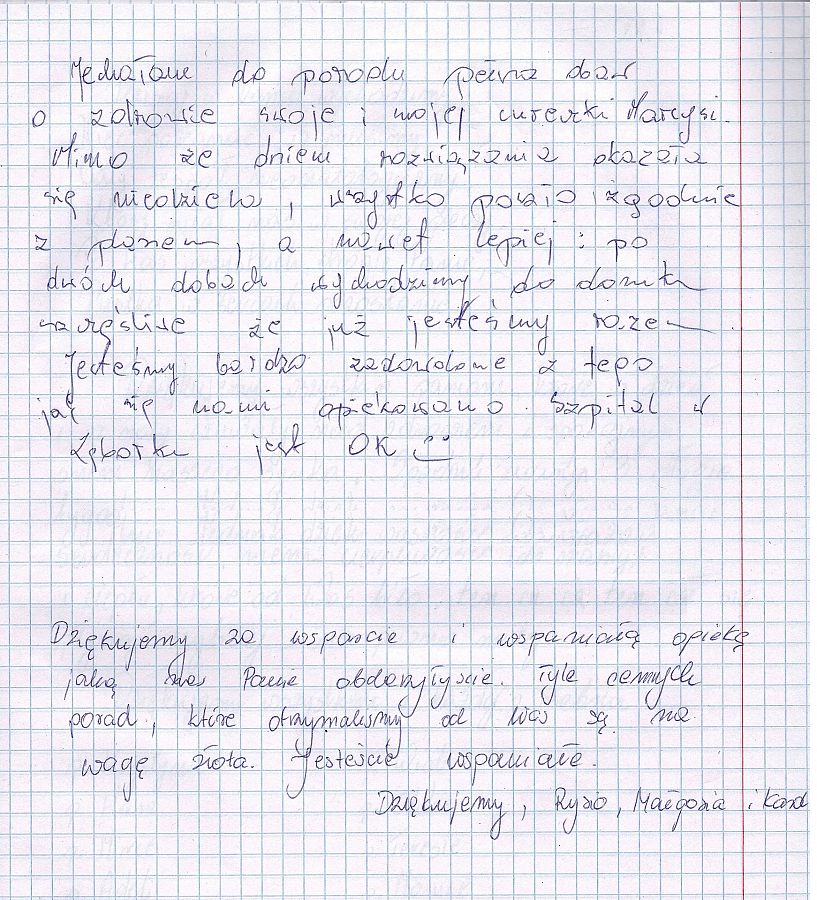 Jechałam do porodu pełna obaw
o zdrowie swoje i mojej cureczki Marcysi.
Mimo że dniem rozwiązania okazała
się niedziela, wszytko poszło zgodnie
z planem, a nawet lepiej: po
dwóch dobach wychodzimy do domu
że już jesteśmy razem.
Jesteśmy bardzo zadowolone z tego
jak się nami opiekowano. Szpital w
Lęborku jest OK
Dziękujemy za wsparcie i wspaniałą opiekę
jaką nas Panie obdarzyłyście. Tyle cennych
porad, które otrzymaliśmy od Was są na
wagę złota. Jesteście wspaniałe.
Dziękujemy, Rysio, Małgosia i Karol